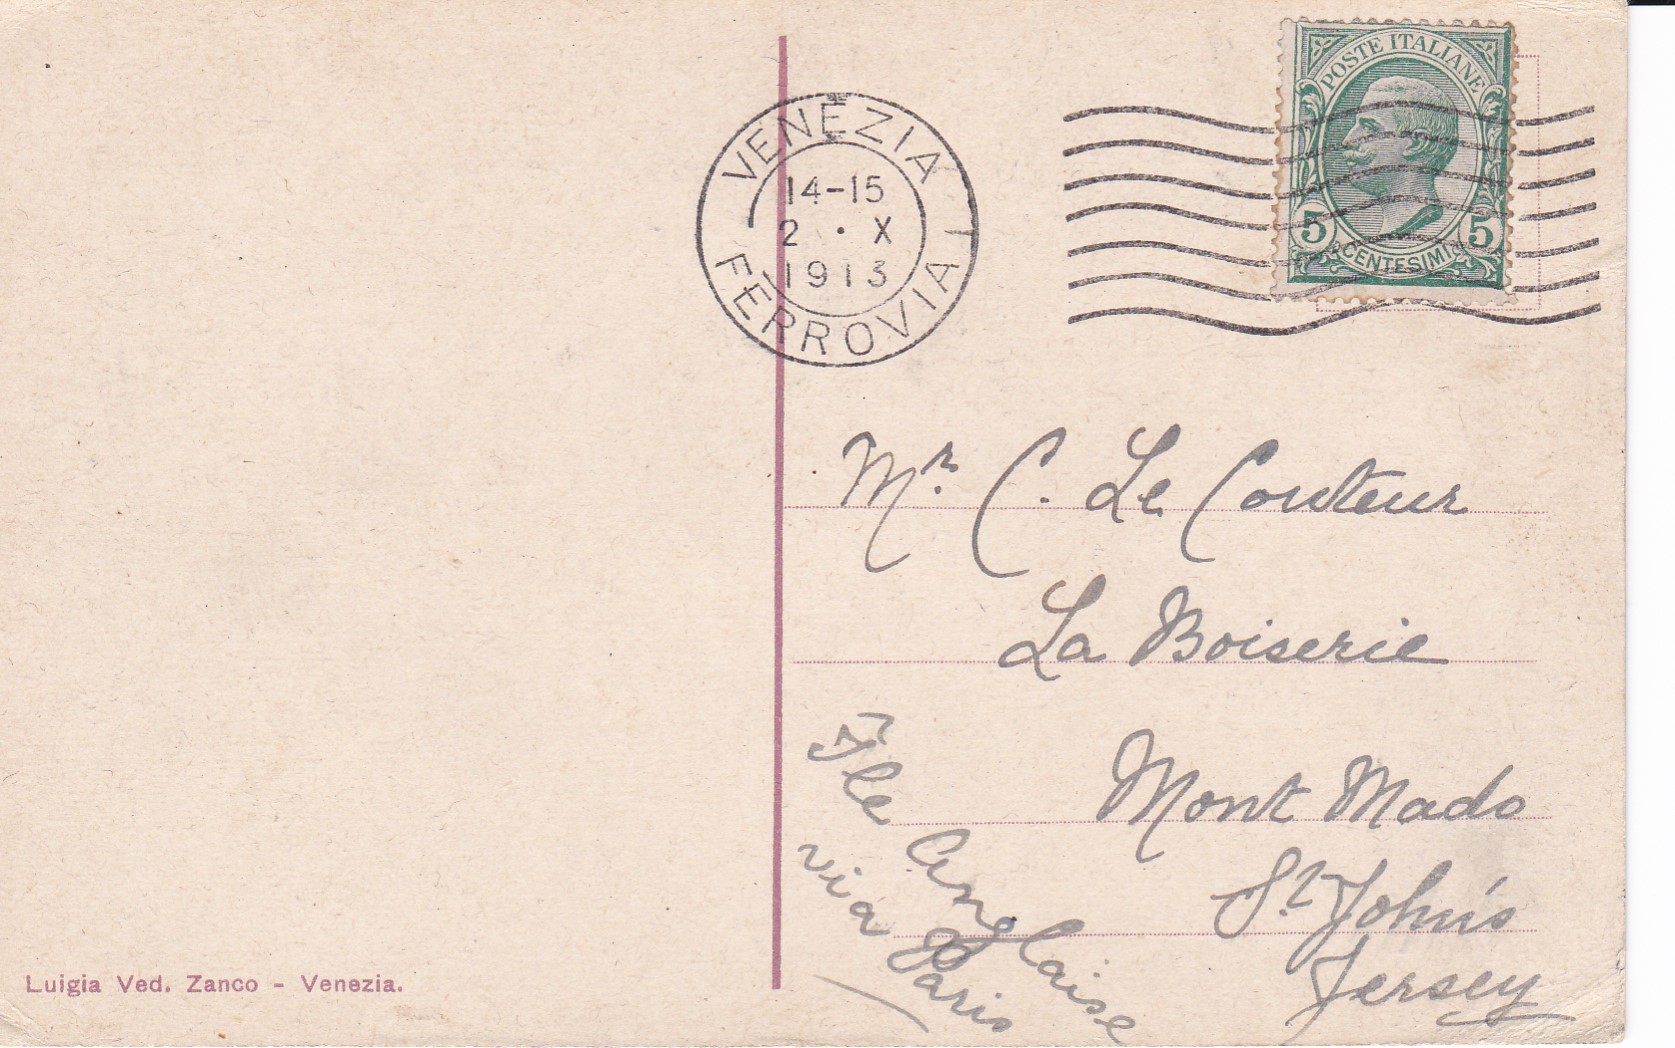 POSTE ITALIANE
5 5
CENTESIMI
VENEZIA
14-15
2 · X
1913
FERROVIA
Mr. C. Le Couteur
La Boiserie
Mont Mado
St. John's
Jersey
Ile Anglaise
via Paris
Luigia Ved. Zanco - Venezia.